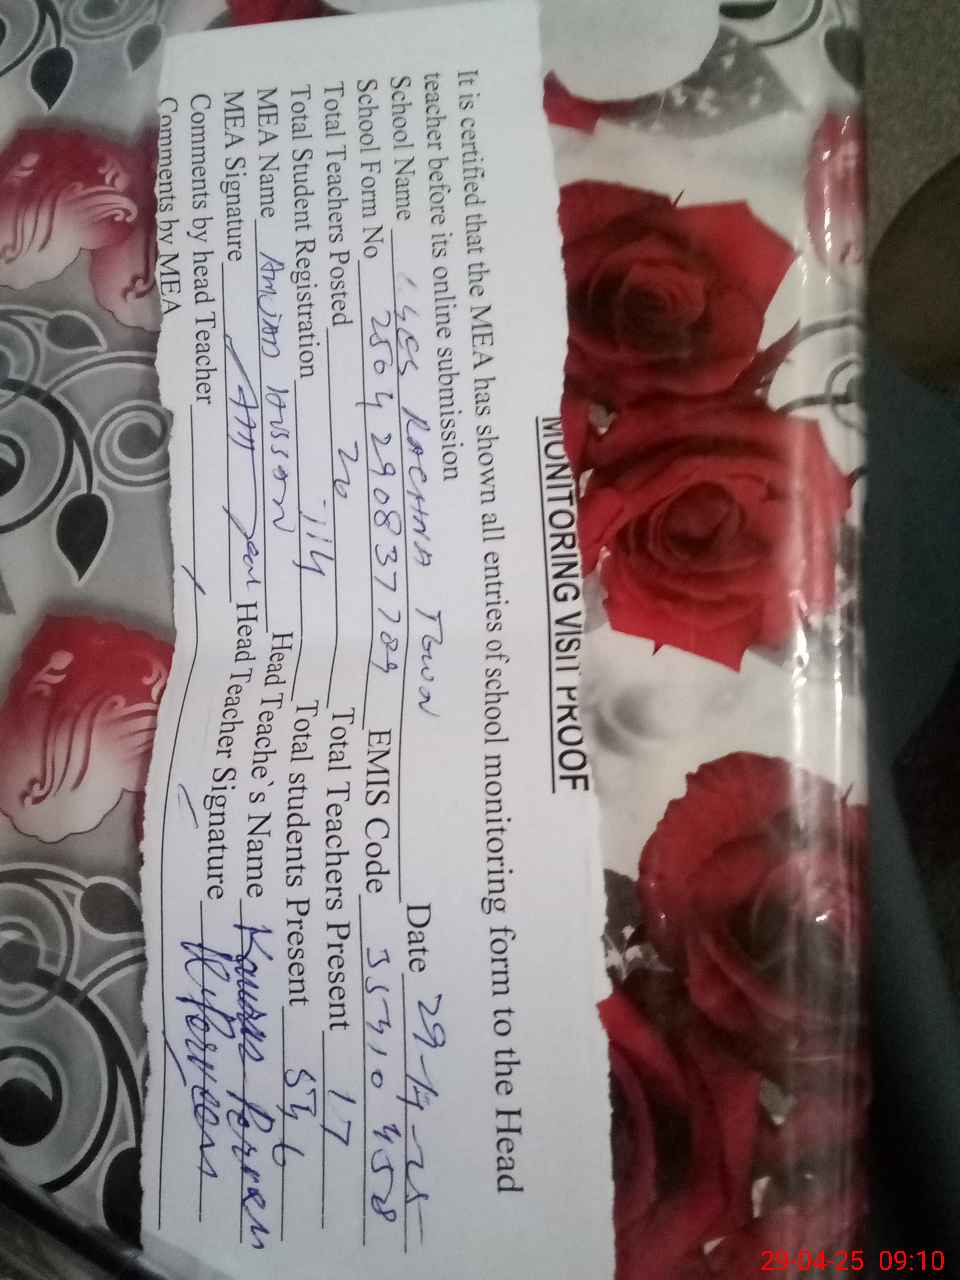 MONITORING VISIT PROOF
It is certified that the MEA has shown all entries of school monitoring form to the Head
teacher before its online submission
School Name GGCS RACHNA TOWN Date 29-04-25
School Form No 2504290837789 EMIS Code 35310458
Total Teachers Posted 20 Total Teachers Present 17
Total Student Registration 714 Total students Present 546
MEA Name AMJAD HUSSAN Head Teache`s Name
MEA Signature Head Teacher Signature
Comments by head Teacher
Comments by MEA
29-04-25 09:10